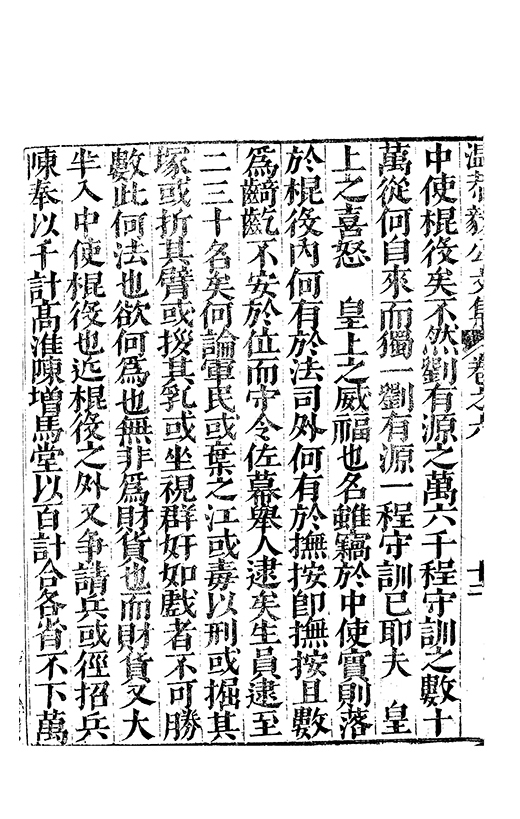 温恭毅公文集 卷之六 十二
中使棍役矣不然劉有源之萬六千程守訓之數十
萬從何自來而獨一劉有源一程守訓已耶夫 皇
上之喜怒 皇上之威福也名雖竊於中使實則落
於棍役內何有於法司外何有於撫按卽撫按且數
為齮齕不安於位而守令佐幕舉人逮矣生員逮至
二三十名矣何論軍民或棄之江或毒以刑或掘其
塚或折其臂或授其乳或坐視群奸如戲者不可勝
數此何法也欲何為也無非為財貨也而財貨又大
半入中使棍役也近棍役之外又争請兵或徑招兵
陳奉以千計高淮陳增馬堂以百計合各省不下萬